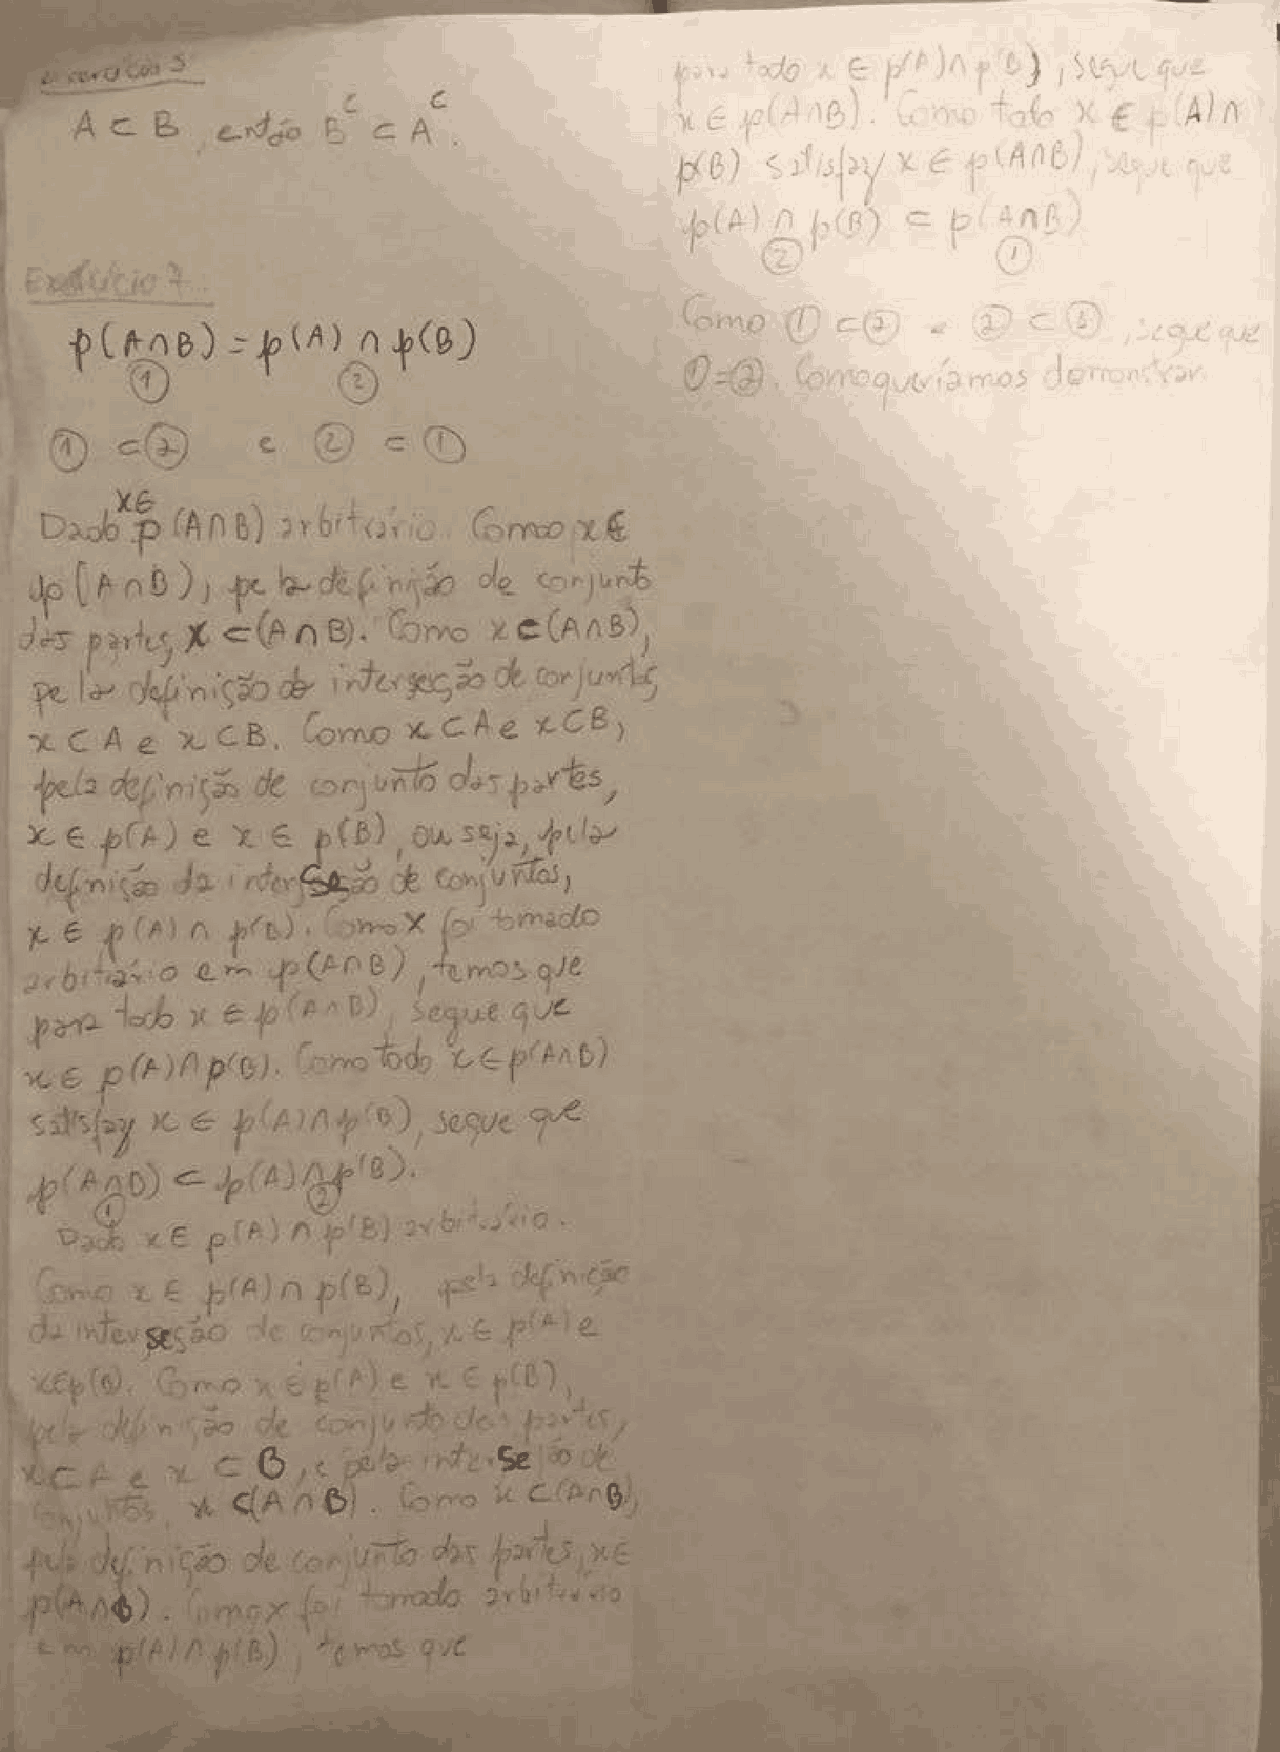 exercício 5
A ⊂ B, então Bᶜ ⊂ Aᶜ.
Exercício 7
p(A∩B) = p(A) ∩ p(B)
① ②
① ⊂ ② e ② ⊂ ①
x∈
Dado p(A∩B) arbitrário. Como x ∈
p(A∩B), pela definição de conjunto
das partes, x ⊂ (A∩B). Como x ⊂ (A∩B),
pela definição de interseção de conjuntos,
x ⊂ A e x ⊂ B. Como x ⊂ A e x ⊂ B,
pela definição de conjunto das partes,
x ∈ p(A) e x ∈ p(B), ou seja, pela
definição da interseção de conjuntos,
x ∈ p(A) ∩ p(B). Como x foi tomado
arbitrário em p(A∩B), temos que
para todo x ∈ p(A∩B), segue que
x ∈ p(A)∩p(B). Como todo x ∈ p(A∩B)
satisfaz x ∈ p(A)∩p(B), segue que
p(A∩B) ⊂ p(A)∩p(B).
① ②
Dado x ∈ p(A) ∩ p(B) arbitrário.
Como x ∈ p(A) ∩ p(B), pela definição
da interseção de conjuntos, x ∈ p(A) e
x∈p(B). Como x ∈ p(A) e x ∈ p(B),
pela definição de conjunto das partes,
x ⊂ A e x ⊂ B, e pela interseção de
conjuntos, x ⊂(A∩B). Como x ⊂ (A∩B),
pela definição de conjunto das partes, x∈
p(A∩B). Como x foi tomado arbitrário
em p(A)∩p(B), temos que
para todo x ∈ p(A)∩p(B), segue que
x ∈ p(A∩B). Como todo x ∈ p(A)∩
p(B) satisfaz x ∈ p(A∩B), segue que
p(A) ∩ p(B) ⊂ p(A∩B)
② ①
Como ① ⊂ ② e ② ⊂, segue que
①=②. Como queríamos demonstrar.